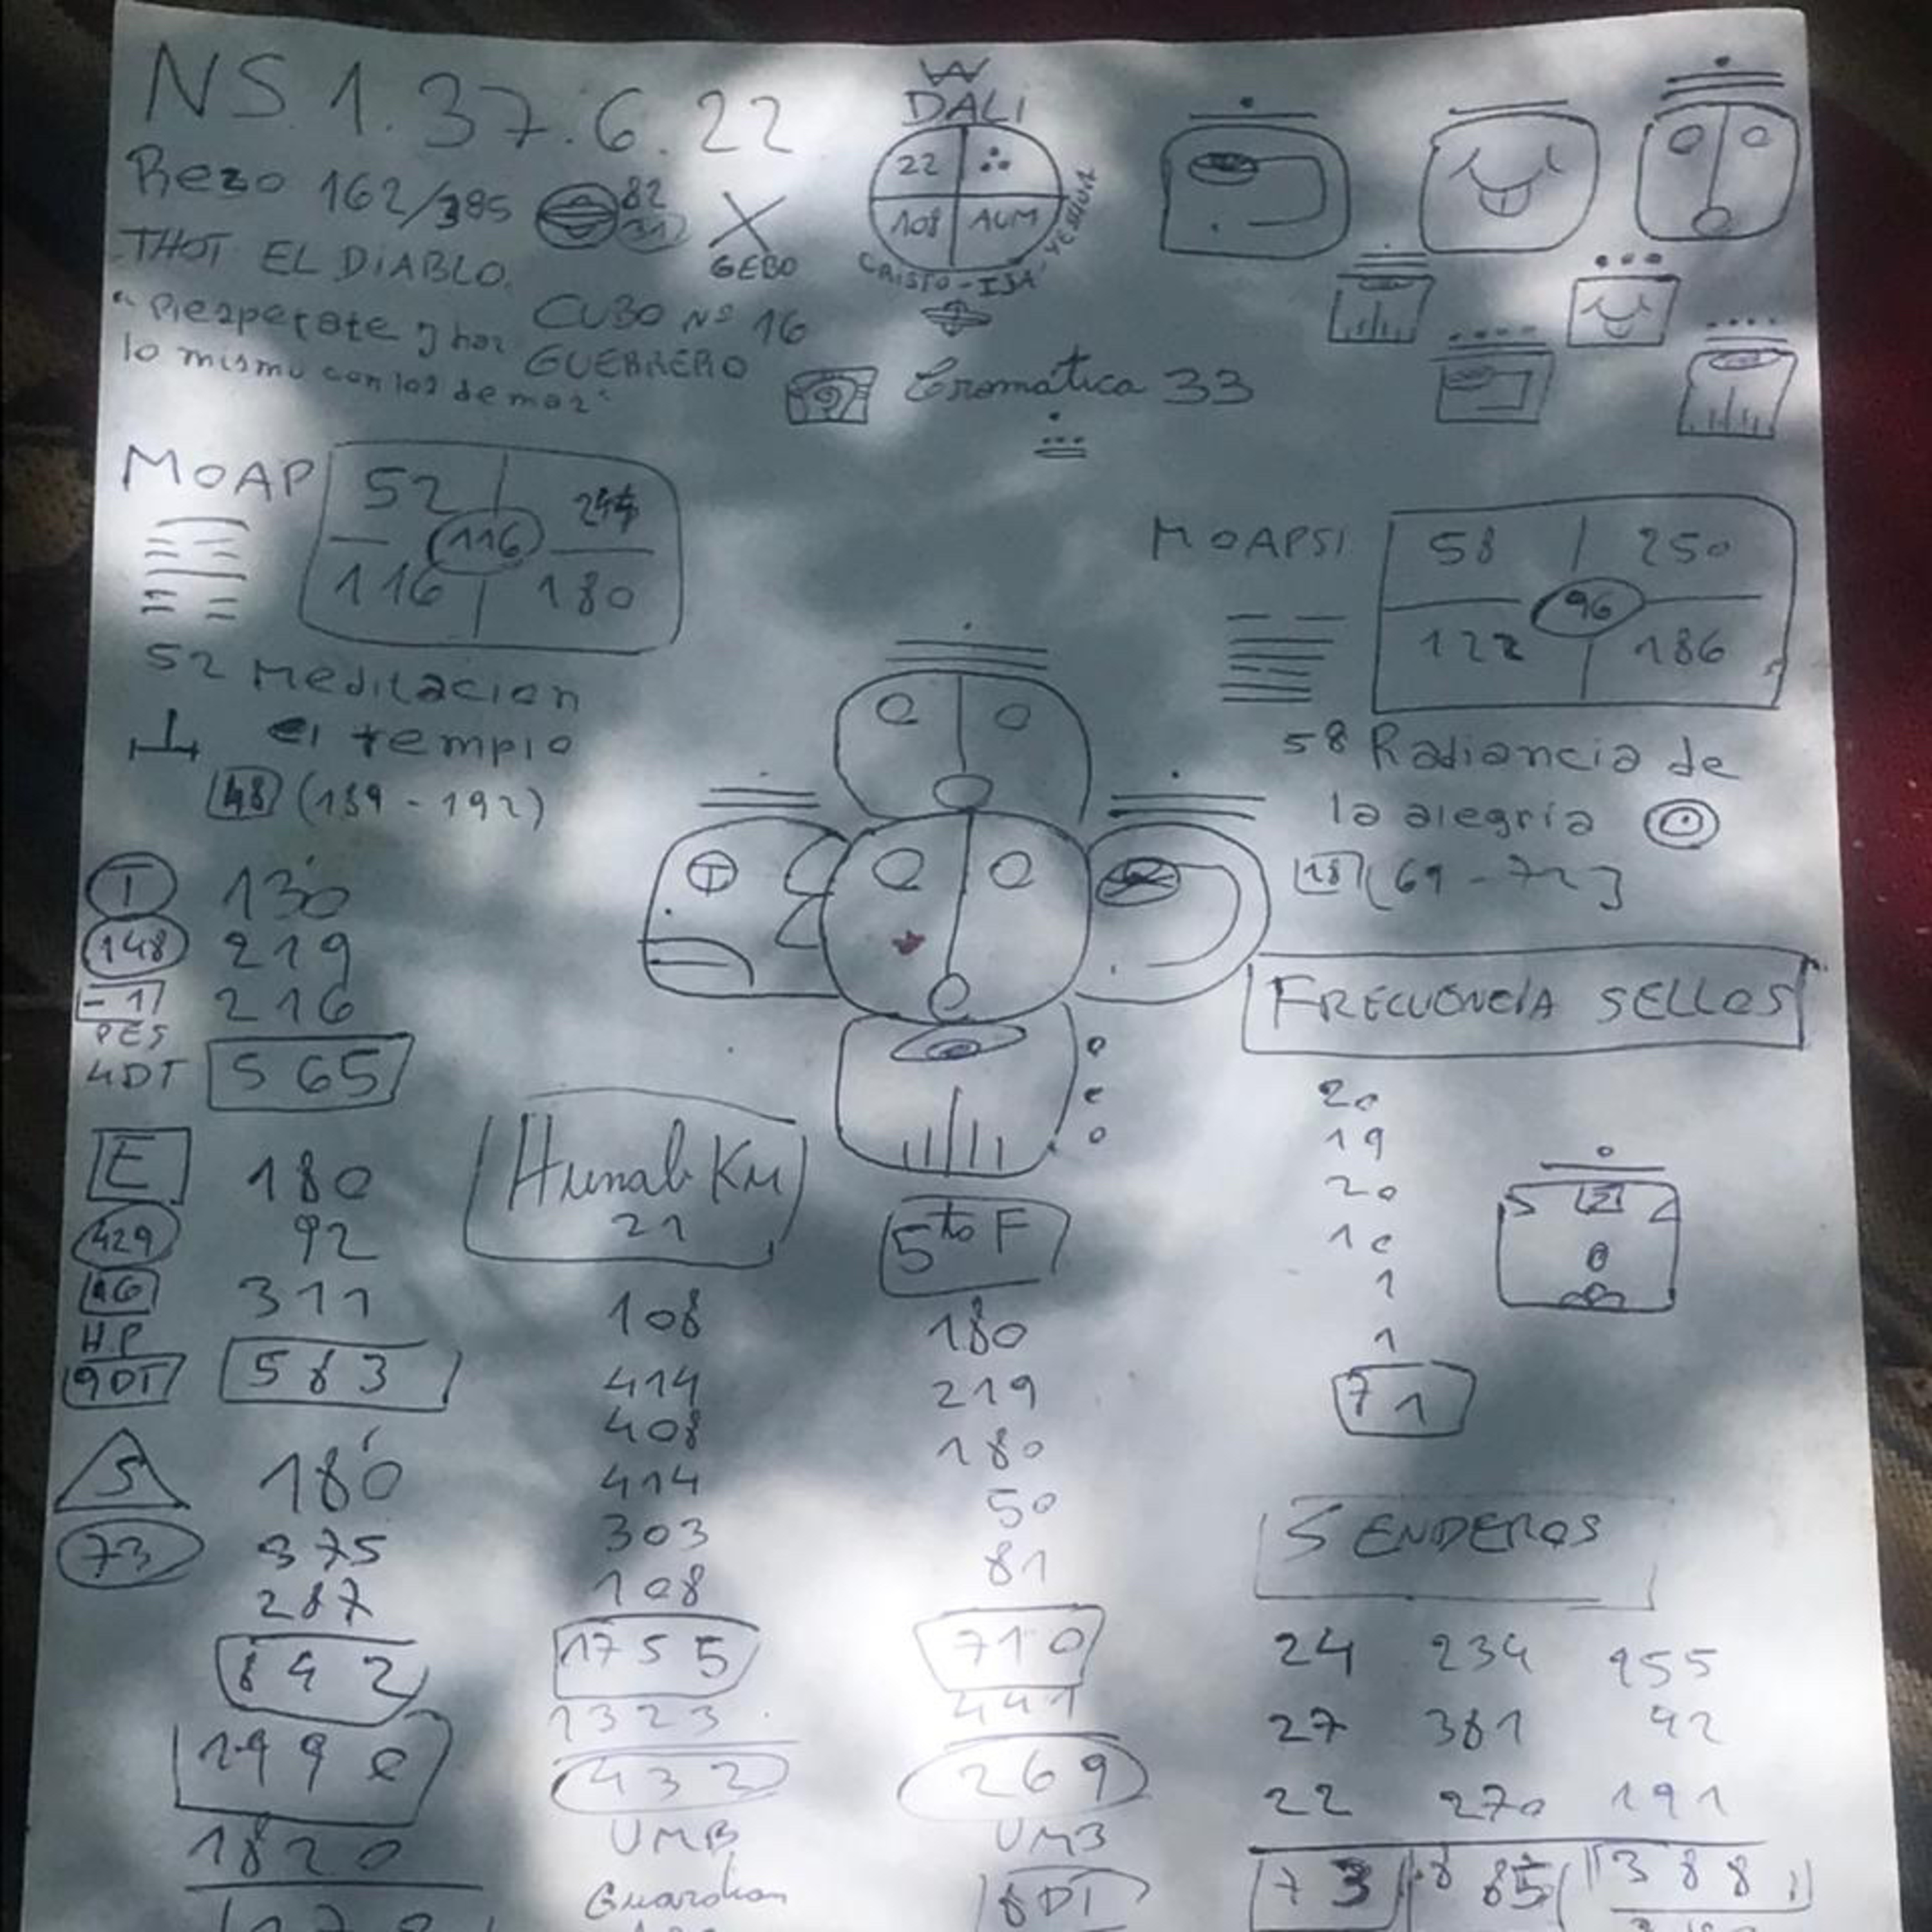 NS 1.37.6.22
Rezo 162/385
82
THOT EL DIABLO.
GEBO
DALI
22
108 AUM
CRISTO - ISA - YESHUA
CUBO Nº 16
GUERRERO
lo mismo con los demas"
Cromatica 33
MOAP
52 244
116
116 180
52 Meditacion
el templo
48 (189 - 192)
MOAPSI
58 250
96
122 186
58 Radiancia de
la alegria
18 (69 - 72)
T 130
148 219
-17 216
PES
4DT 565
E 180
429 92
16 311
HP
9DT 583
S 180
73 375
287
842
1990
1820
Hunab Ku
21
108
414
408
414
303
108
1755
1323
432
UMB
Guardian
5to F
180
219
180
50
81
710
441
269
UMB
8DT
FRECUENCIA SELLOS
20
19
20
10
1
1
71
SENDEROS
24 234 155
27 381 42
22 270 191
73 885 388